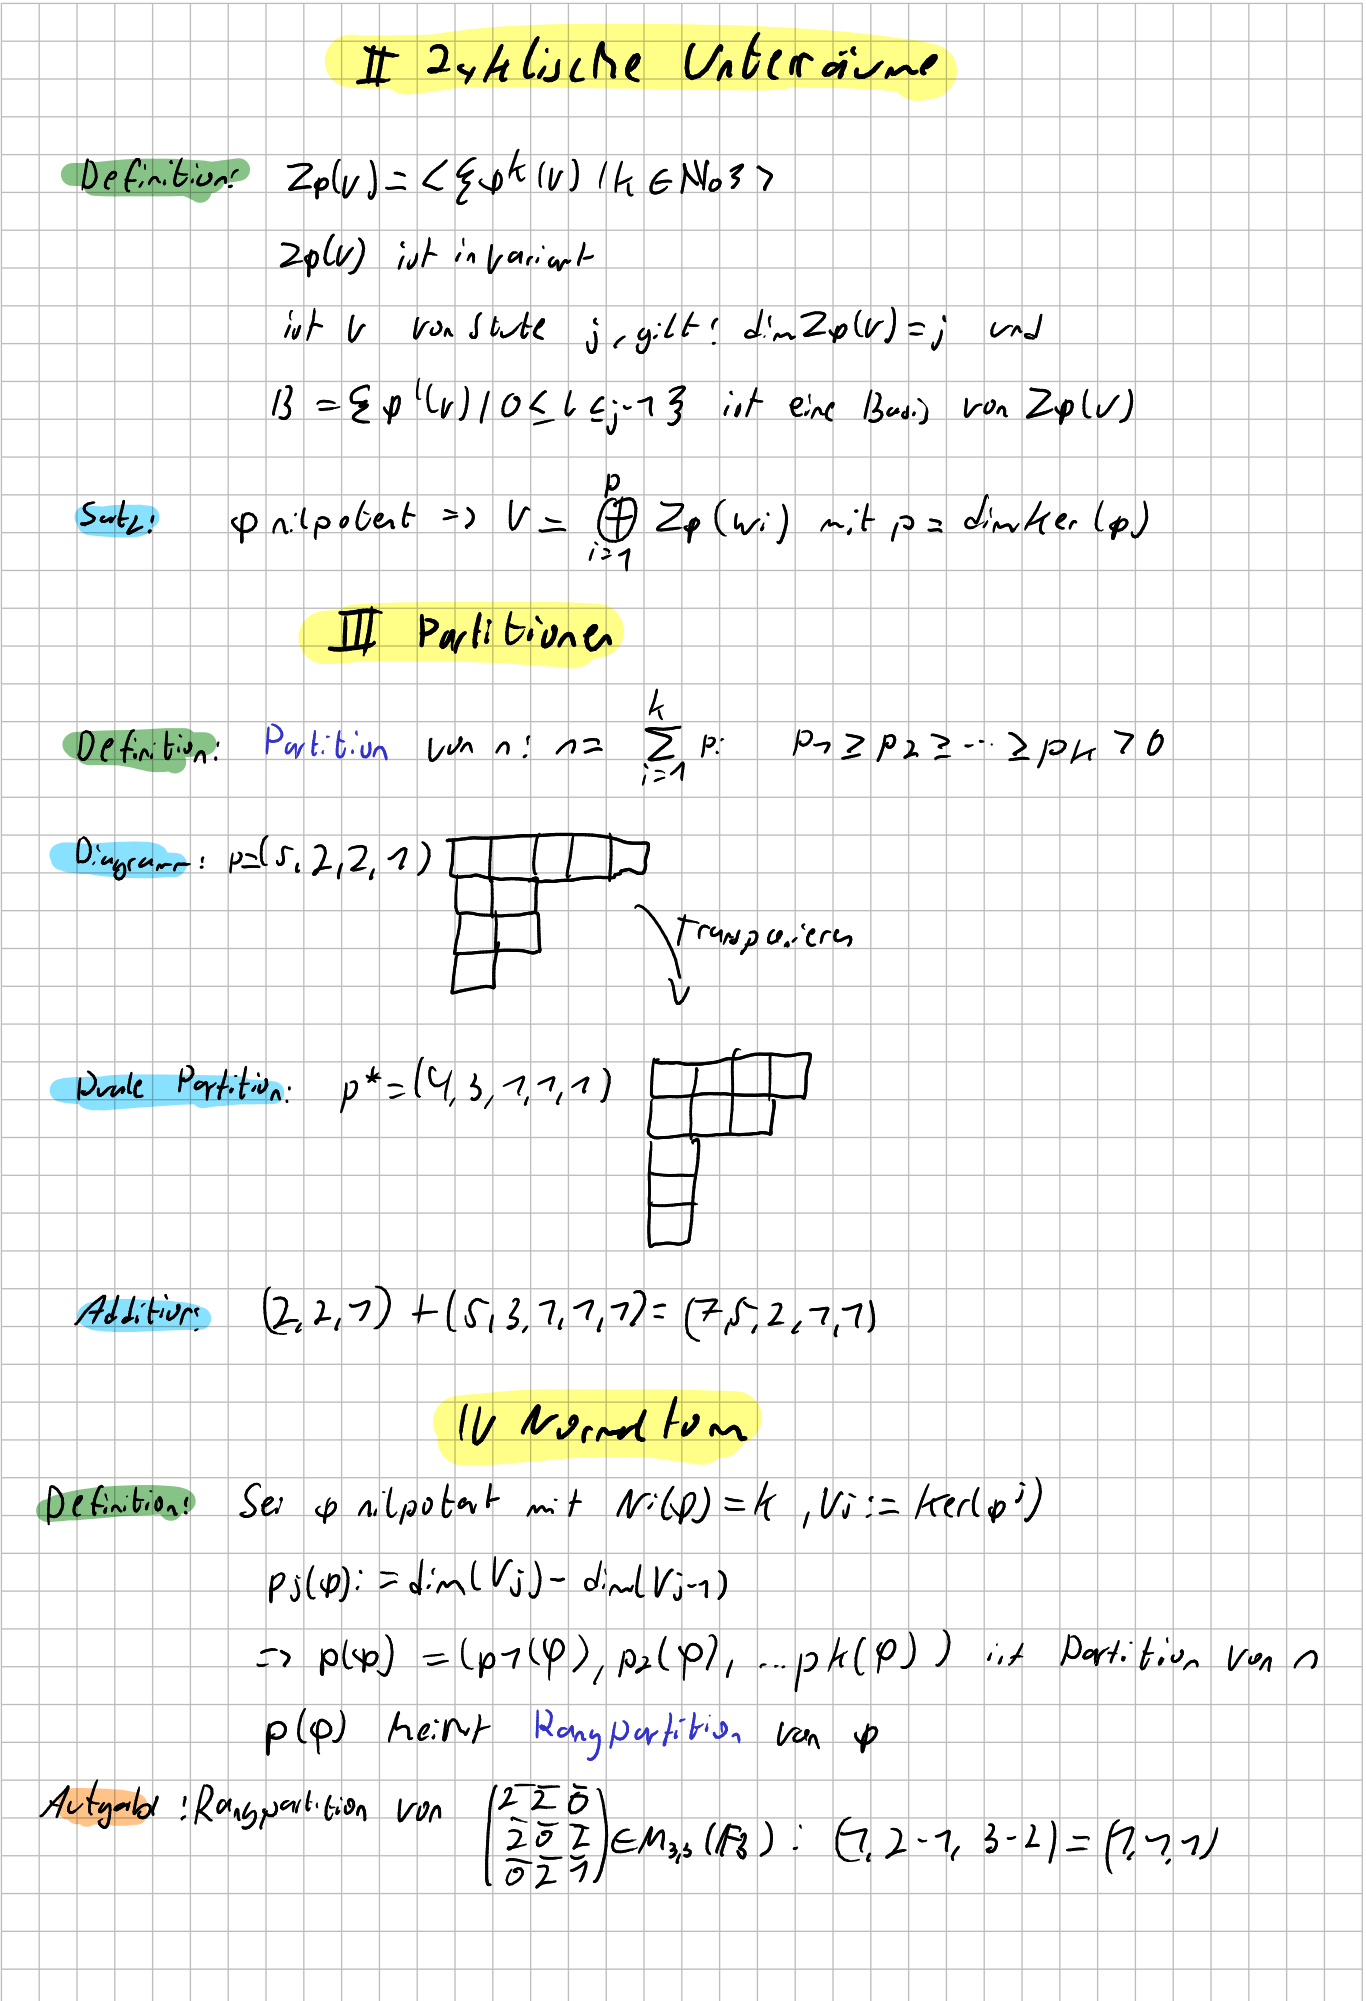 II Zyklische Unterräume
Definition: Zφ(v) = <{φ^k(v) | k ∈ ℕ0}>
Zφ(v) ist invariant
ist v von Stufe j, gilt: dim Zφ(v) = j und
B = {φ^l(v) | 0 ≤ l ≤ j-1} ist eine Basis von Zφ(v)
Satz: φ nilpotent => V = ⊕_{i=1}^{p} Zφ(wi) mit p = dim ker(φ)
III Partitionen
Definition: Partition von n: n = ∑_{i=1}^{k} pi p1 ≥ p2 ≥ ... ≥ pk > 0
Diagramm: p=(5,2,2,1)
Transponieren
Duale Partition: p* = (4,3,1,1,1)
Addition: (2,2,1) + (5,3,1,1,1) = (7,5,2,1,1)
IV Normalform
Definition: Sei φ nilpotent mit Ni(φ) = k, Vj := ker(φ^j)
pj(φ) := dim(Vj) - dim(Vj-1)
=> p(φ) = (p1(φ), p2(φ), ... pk(φ)) ist Partition von n
p(φ) heisst Rangpartition von φ
Aufgabe: Rangpartition von (2̅ 2̅ 0̅
2̅ 0̅ 2̅
0̅ 2̅ 1̅) ∈ M3,3 (F3) : (1, 2-1, 3-2) = (1,1,1)